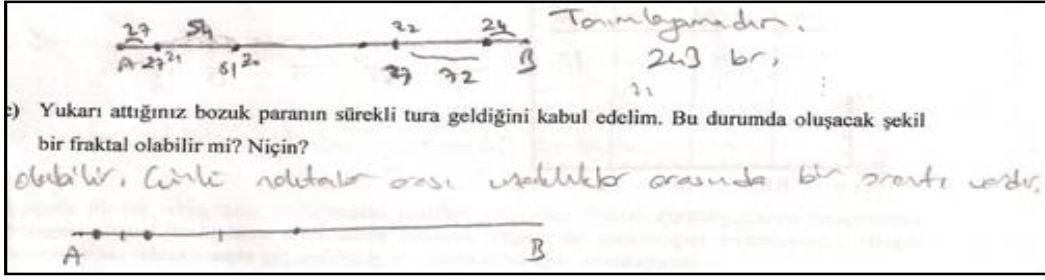 27 54 22 24 Tanımlayamadım.
A 27 21 61 20 27 72 B 243 br,
c) Yukarı attığınız bozuk paranın sürekli tura geldiğini kabul edelim. Bu durumda oluşacak şekil
bir fraktal olabilir mi? Niçin?
olabilir. Çünkü noktalar arası uzaklıklar arasında bir orantı vardır.
A B